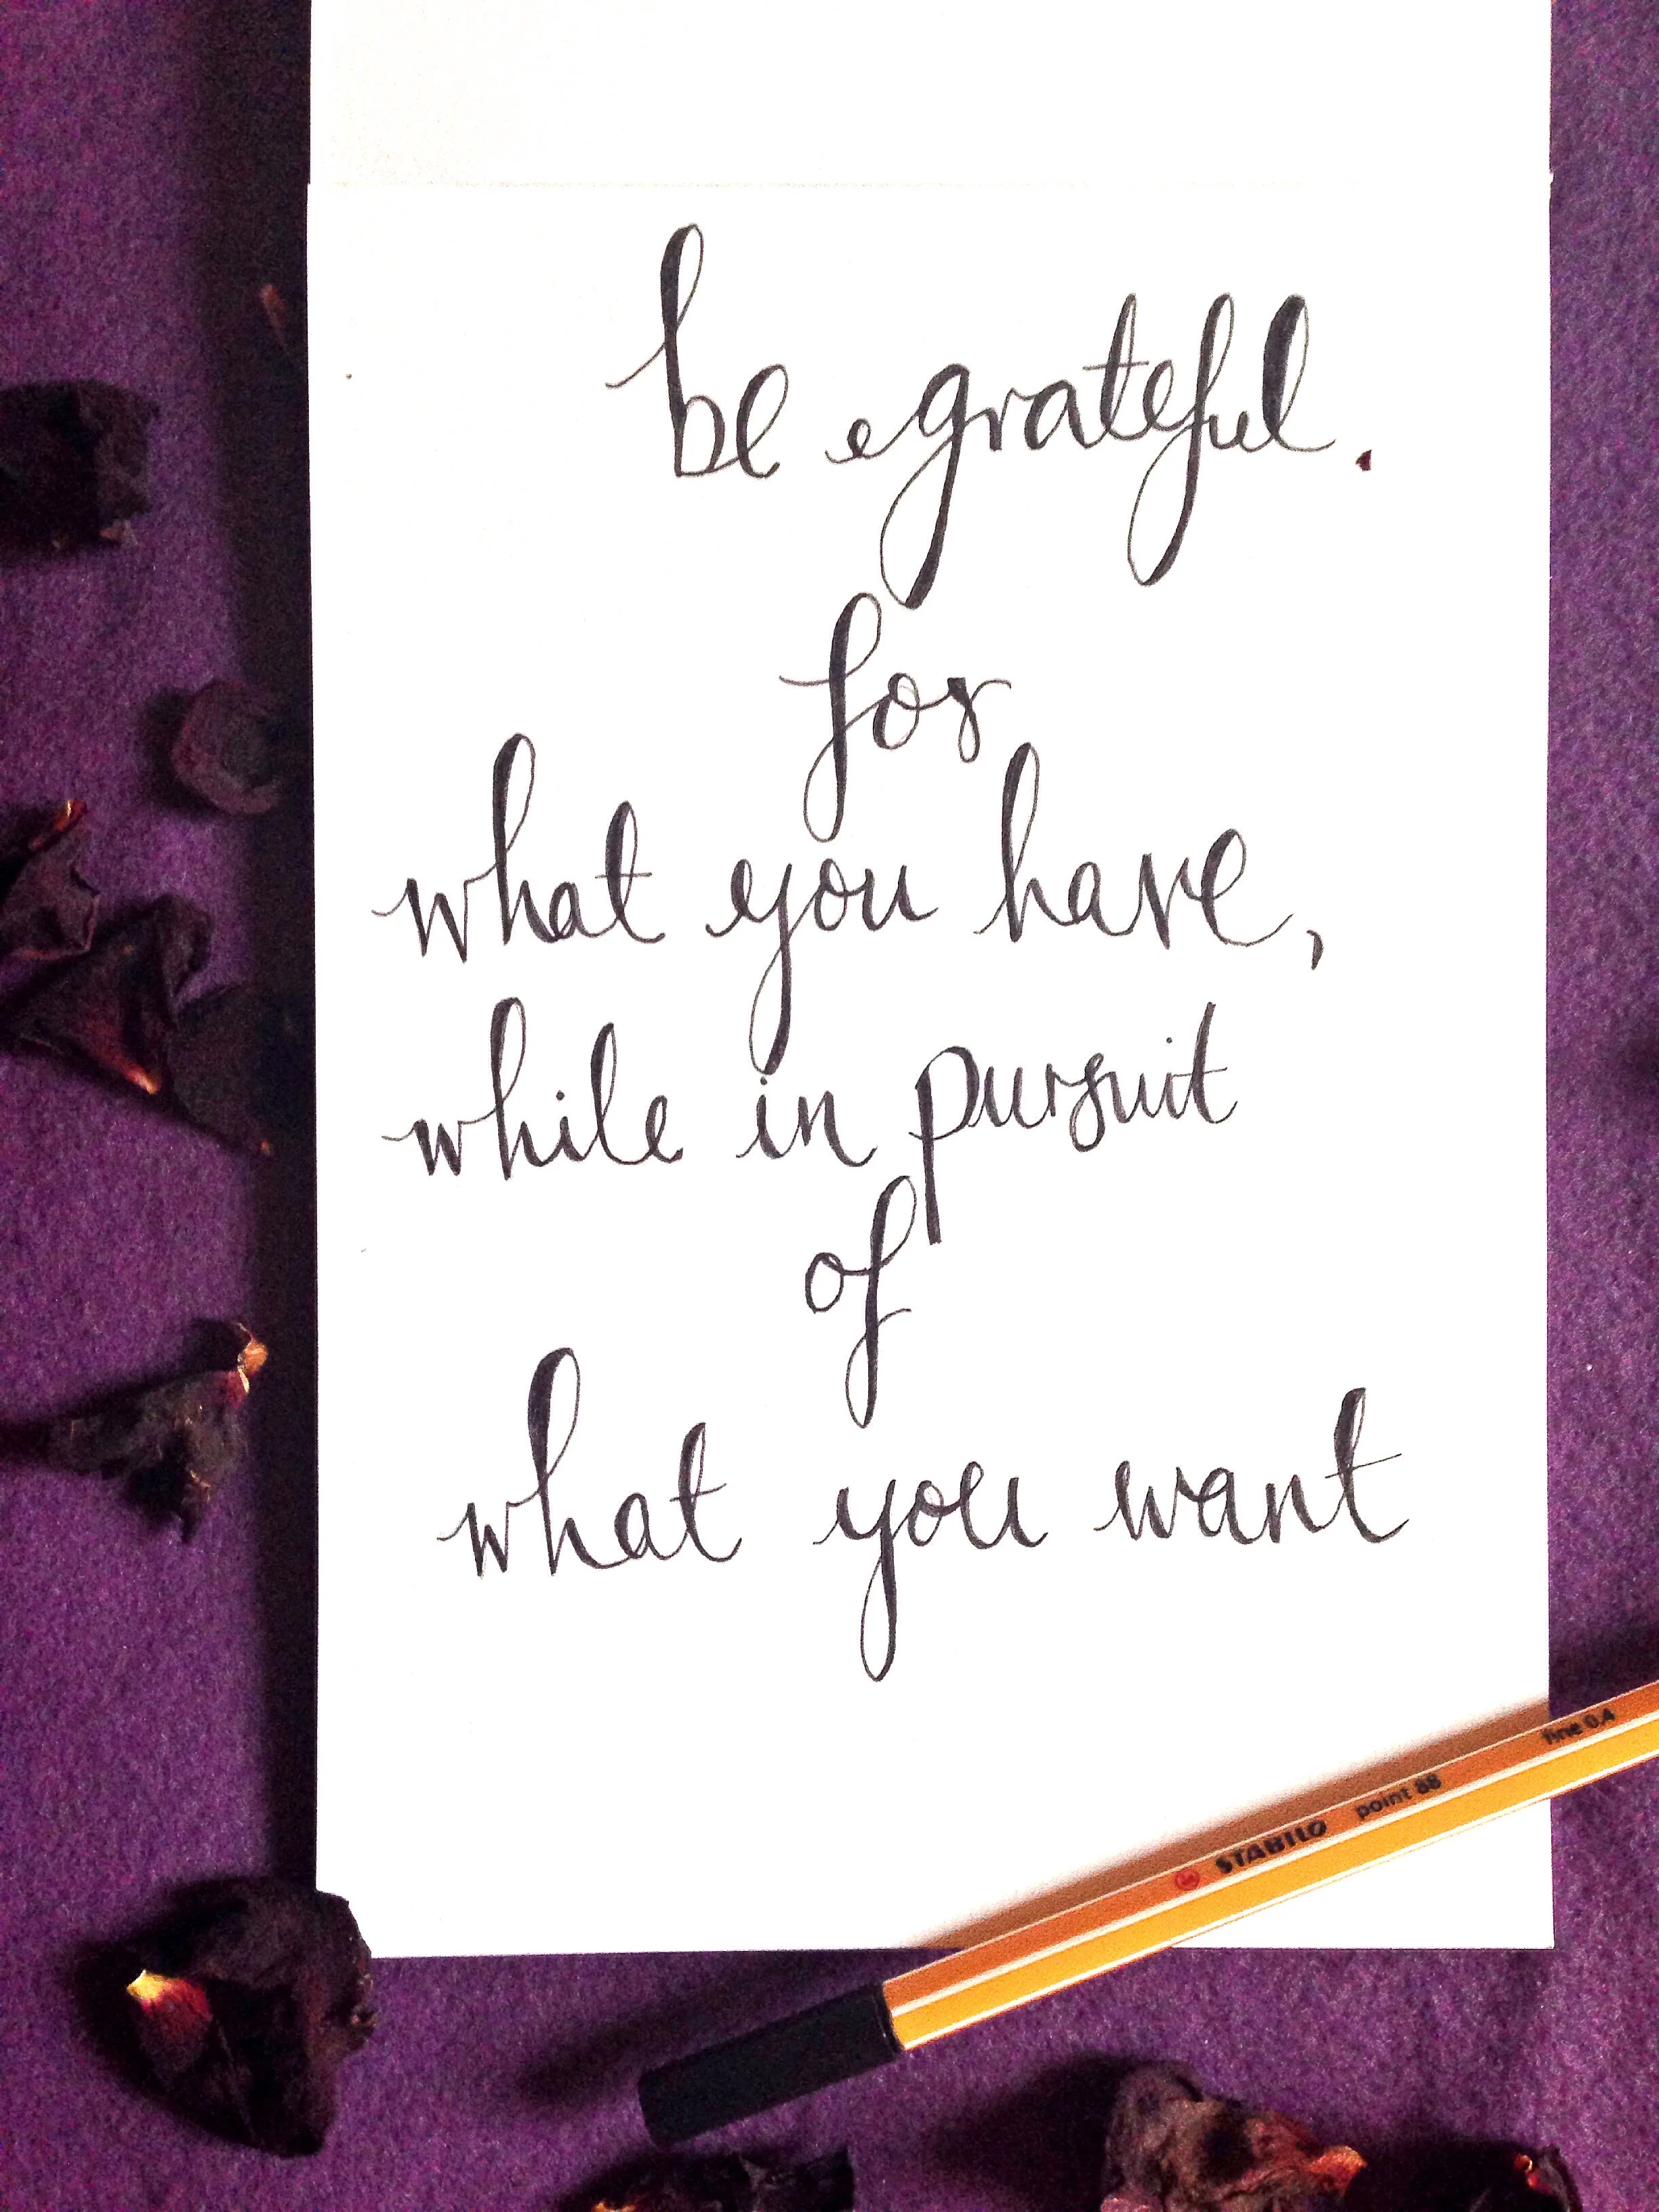 be grateful.
for
what you have,
while in pursuit
of
what you want
STABILO point 88 fine 0.4